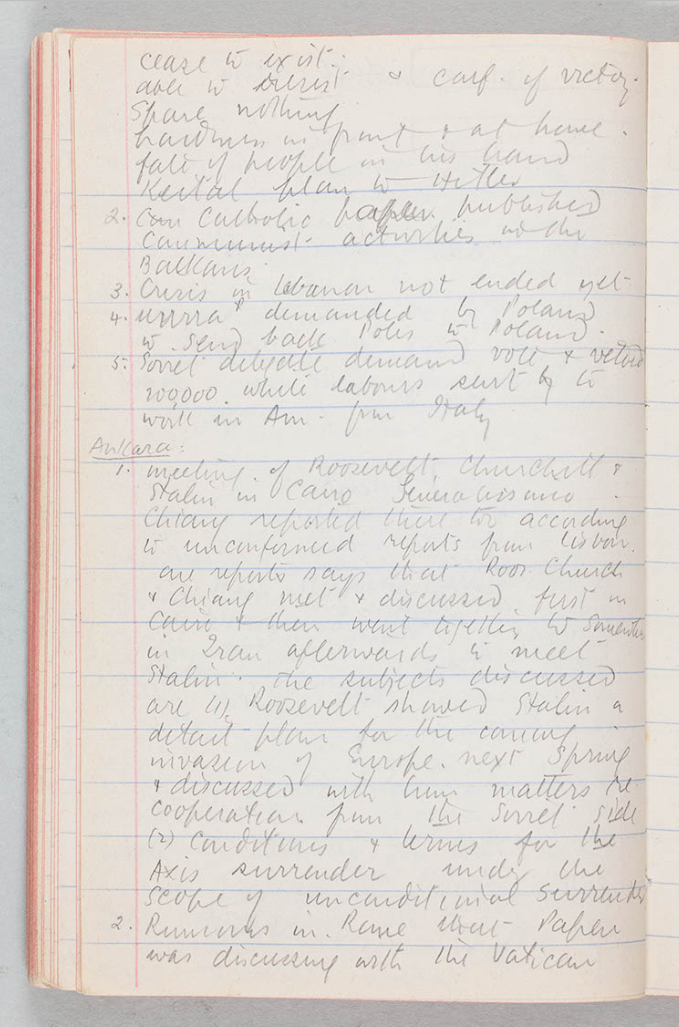 cease to exist.
able to resist & conf. of victory.
Spare nothing
hardness in front & at home.
fate of people in his hand
Keital plan to Hitler
2. Can Catholic paper published
Communist activities in the
Balkans.
3. Crisis in Lebanon not ended yet
4. UNRRA demanded by Poland
to send back Poles to Poland.
5. Soviet delegate demand vote &
200,000 while labours sent by to
work in Am. from Italy
Ankara:
1. meeting of Roosevelt, Churchill &
Stalin in Cairo Generalissimo
Chiang reported there too according
to unconfirmed reports from Lisbon.
one reports says that Roos. Church
& Chiang met & discussed first in
Cairo & then went together to
in Iran afterwards to meet
Stalin. The subjects discussed
are (1) Roosevelt showed Stalin a
detail plan for the coming
invasion of Europe next Spring
& discussed with him matters re.
cooperation from the Soviet side
(2) Conditions & terms for the
Axis surrender under the
scope of unconditinial surrender
2. Rumours in Rome that Papen
was discussing with the Vatican